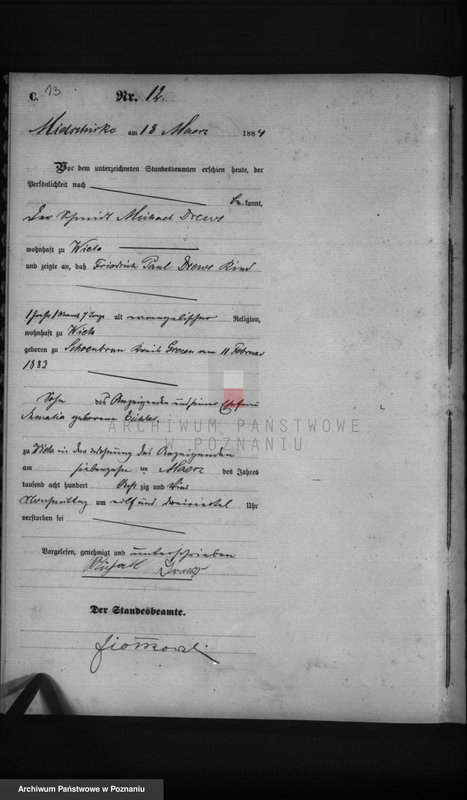 C. 13 Nr. 12.
Mietschisko am 18 Maerz 1884
Vor dem unterzeichneten Standesbeamten erschien heute, der
Persönlichkeit nach
be kannt,
der Schmidt Michael Drews
wohnhaft zu Wiela
und zeigte an, daß Friedrich Paul Drews Kind
1 Jahr 1 Monat 7 Tage alt evangelischer Religion,
wohnhaft zu Wiela
geboren zu Schoenbrun Kreis am 11 Februar
1883
Sohn des Anzeigenden und seiner Ehefrau
Amalia geborene
zu Wiela in der Wohnung des Anzeigenden
am siebenzehn ten Maerz des Jahres
tausend acht hundert acht zig und vier
Nachmittag um elf und dreiviertel Uhr
verstorben sei
Vorgelesen, genehmigt und unterschrieben
Michael Drews
Der Standesbeamte.
ARCHIWUM PAŃSTWOWE
W POZNANIU
Archiwum Państwowe w Poznaniu